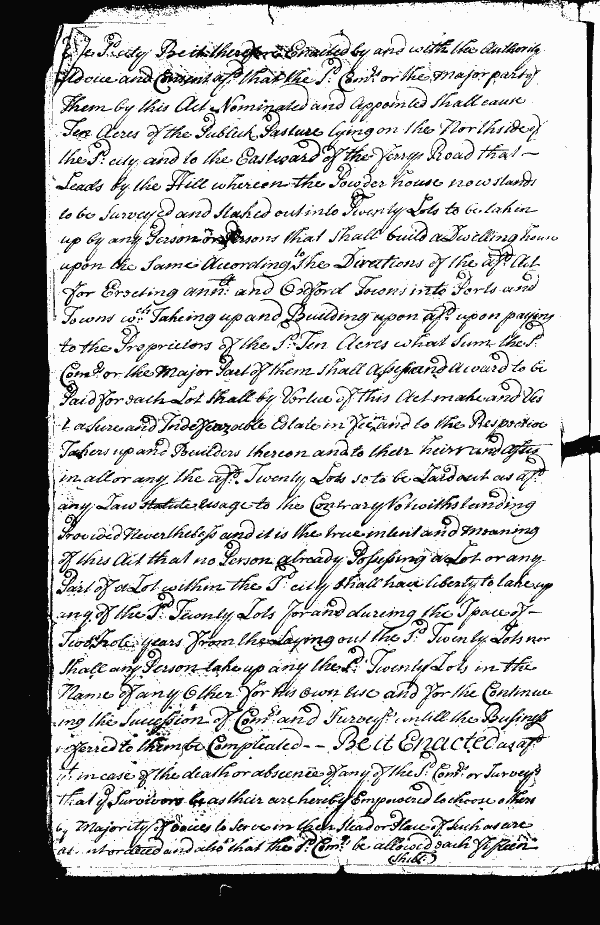 Sd. city Be it therefore Enacted by and with the Authority
Advice and Consent afd. that the Sd. Comrs. or the major part of
them by this Act Nominated and Appointed shall cause
Ten Acres of the Publick Pasture lying on the North side of
the Sd. city and to the Eastward of the ferry Road that —
Leads by the Hill whereon the Powder house now stands
to be Surveyed and staked out into Twenty Lots to be taken
up by any Person or Persons that shall build a Dwelling house
upon the Same According to the Directions of the afd. Act
for Erecting anns. and Oxford Towns into Ports and
Towns wch. Takeing up and Building upon afd. upon paying
to the Proprietors of the Sd. Ten Acres what sum the Sd.
Comrs. or the Major Part of them shall Assess and award to be
Paid for each Lot shall by Vertue of this Act make and Ves
t a sure and Indefeazable Estate in fee in and to the Respective
Takers up and Builders thereon and to their heirs and assigs
in all or any the afd. Twenty Lots so to be Laid out as afd.
any Law statute usage to the Contrary Notwithstanding
Provided Nevertheless and it is the true intent and meaning
of this Act that no Person already Possessing a Lot or any
Part of a Lot within the Sd. city shall have liberty to take up
any of the Sd. Twenty Lots for and during the Space of —
Two whole years from the Laying out the Sd. Twenty Lots nor
shall any Person take up any the Sd. Twenty Lots in the
Name of any Other for his own Use and for the Continue
ing the Succession of Comrs. and Surveyr. untill the Business
referred to them be Compleated — — Be it Enacted as afd.
in case of the death or absence of any of the Sd. Comrs. or Surveyr.
that ye Survivors be as their are hereby Empowered to choose others
by Majority of voices to serve in their stead or Place of Such as are
and also that the Sd. Comrs. be allowed each fifteen
Shill.